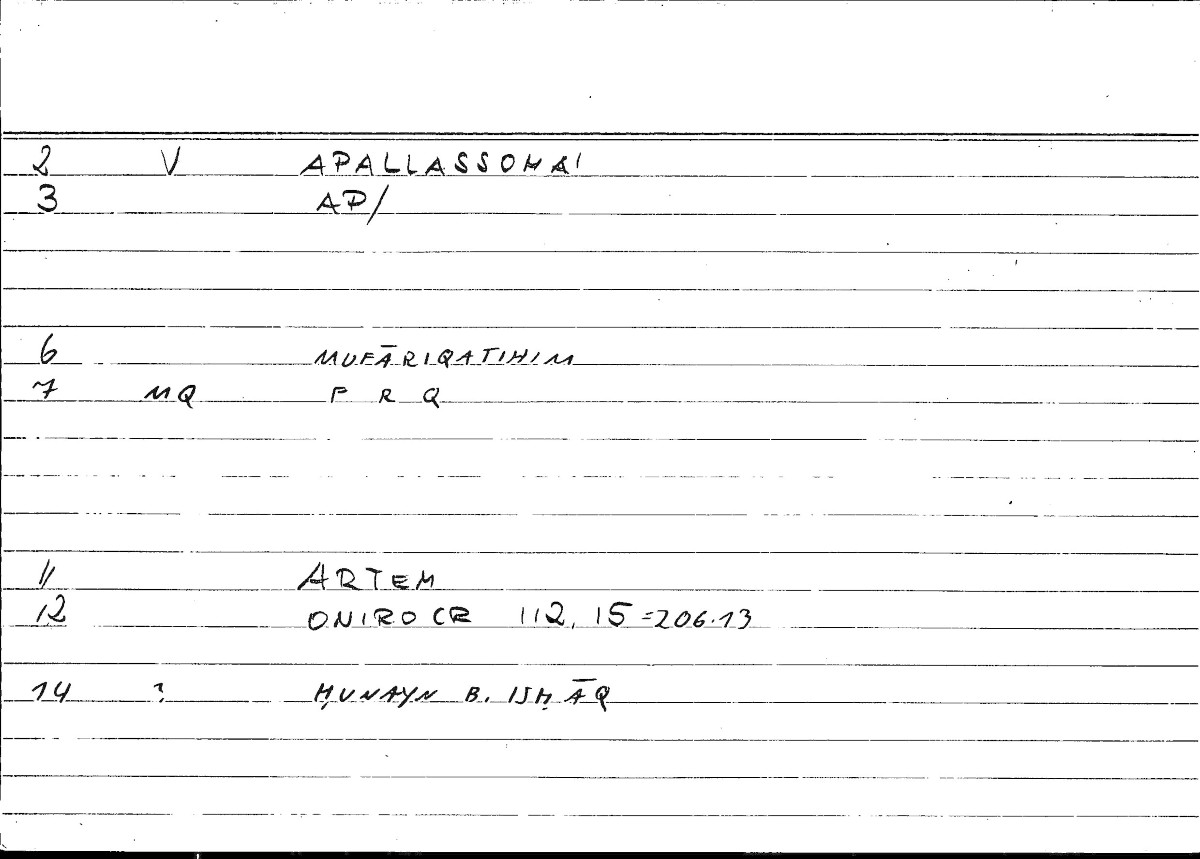 2 V APALLASSOMAI
3 AP/
6 MUFĀRIQATIHIM
7 MQ F R Q
11 ARTEM
12 ONIROCR 112, 15=206.13
14 ? ḤUNAYN B. ISḤĀQ